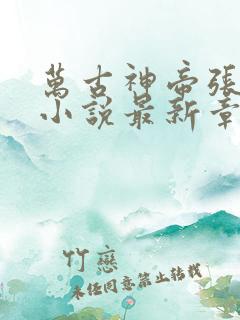 萬古神帝張
小說最新章
竹戀
未經同意禁止轉載